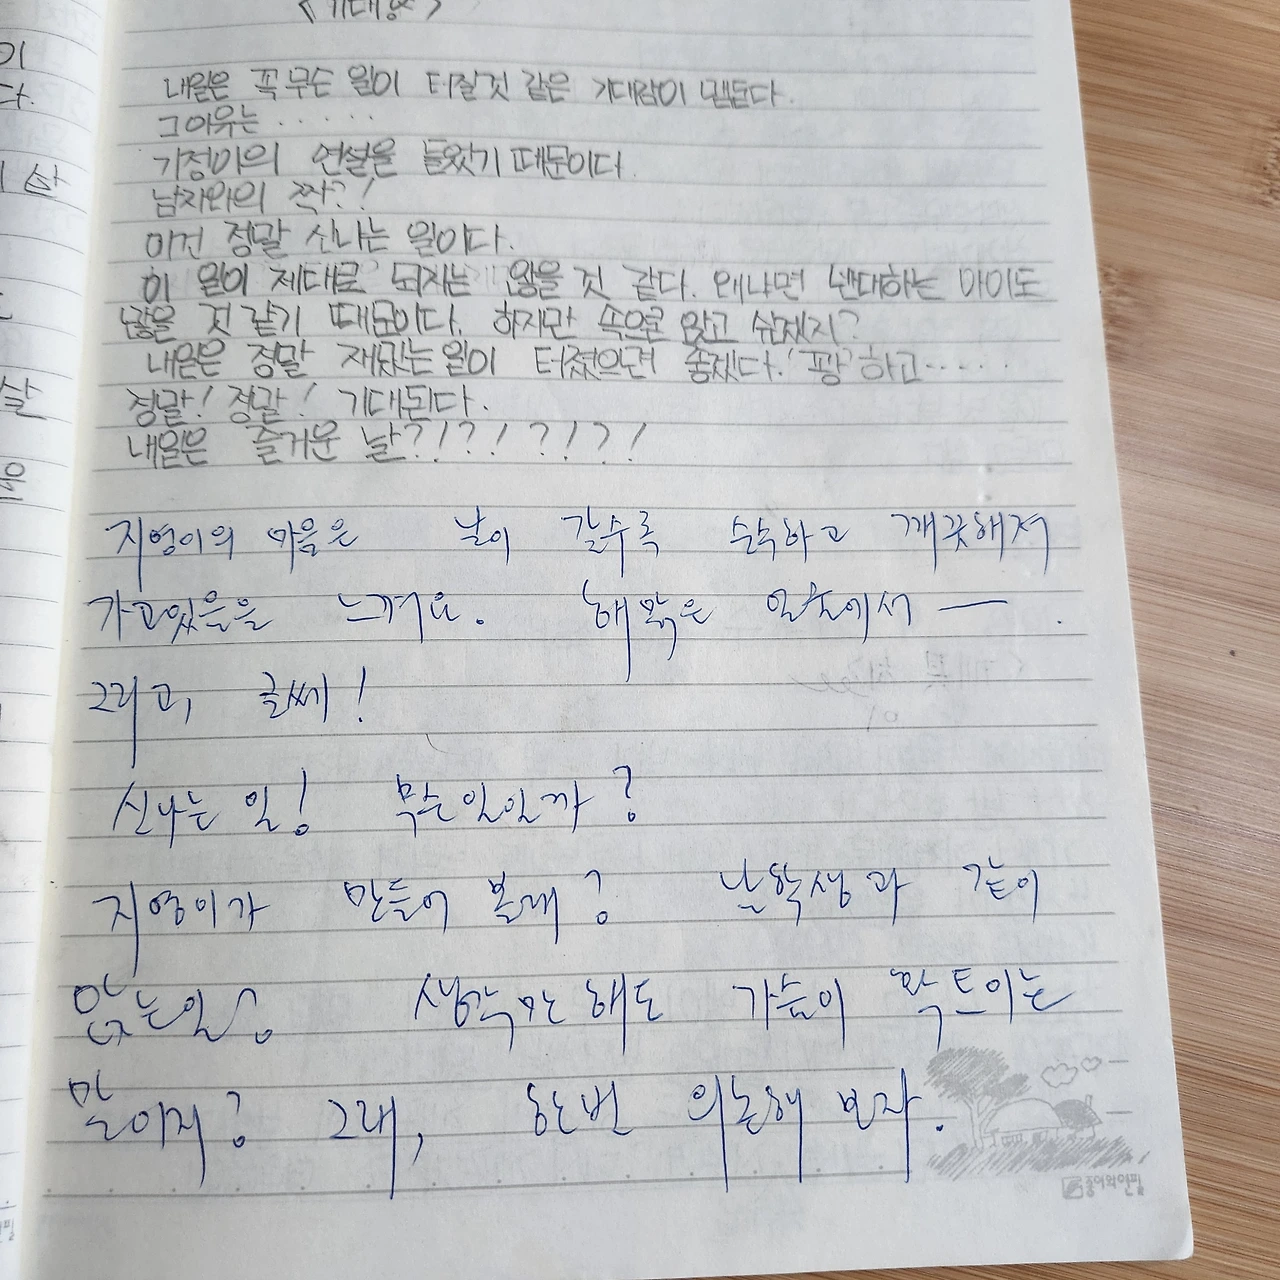 <기대
내일은 꼭 무슨 일이 터질것 같은 기대감이 맴돈다.
그이유는 . . . . . .
기정이의 연설을 들었기 때문이다.
남자와의 짝?!
이건 정말 신나는 일이다.
이 일이 제대로 되지는 않을 것 같다. 왜냐면 반대하는 아이도
많을 것 같기 때문이다. 하지만 속으론 앉고 싶겠지?
내일은 정말 재밌는 일이 터졌으면 좋겠다. '팡' 하고 . . . . . .
정말! 정말! 기대된다.
내일은 즐거운 날?!?!?!?!
지영이의 마음은 날이 갈수록 순수하고 깨끗해져
가고있음을 느껴요. 해맑은 일손에서 —
그리고, 글쎄!
신나는 일! 무슨일일까?
지영이가 만들어 볼래? 남학생과 같이
앉는일? 생각만해도 가슴이 확 트이는
말이지? 그래, 한번 의논해 보자.
종이와연필
이
다.
살
을